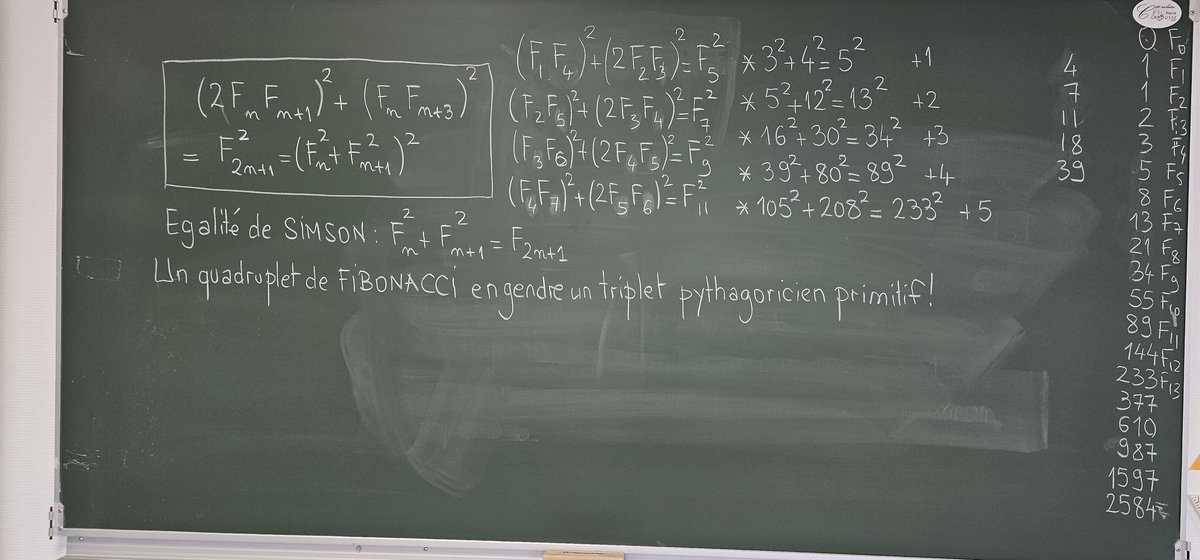 (2FₙFₙ₊₁)² + (FₙFₙ₊₃)²
= F²₂ₙ₊₁ = (F²ₙ + F²ₙ₊₁)²
(F₁F₄)² + (2F₂F₃)² = F₅² * 3² + 4² = 5² +1
(F₂F₅)² + (2F₃F₄)² = F₇² * 5² + 12² = 13² +2
(F₃F₆)² + (2F₄F₅)² = F₉² * 16² + 30² = 34² +3
(F₄F₇)² + (2F₅F₆)² = F₁₁² * 39² + 80² = 89² +4
* 105² + 208² = 233² +5
Egalité de SIMSON : F²ₙ + F²ₙ₊₁ = F₂ₙ₊₁
Un quadruplet de FIBONACCI engendre un triplet pythagoricien primitif !
4
7
11
18
39
0 F₀
1 F₁
1 F₂
2 F₃
3 F₄
5 F₅
8 F₆
13 F₇
21 F₈
34 F₉
55 F₁₀
89 F₁₁
144 F₁₂
233 F₁₃
377
610
987
1597
2584